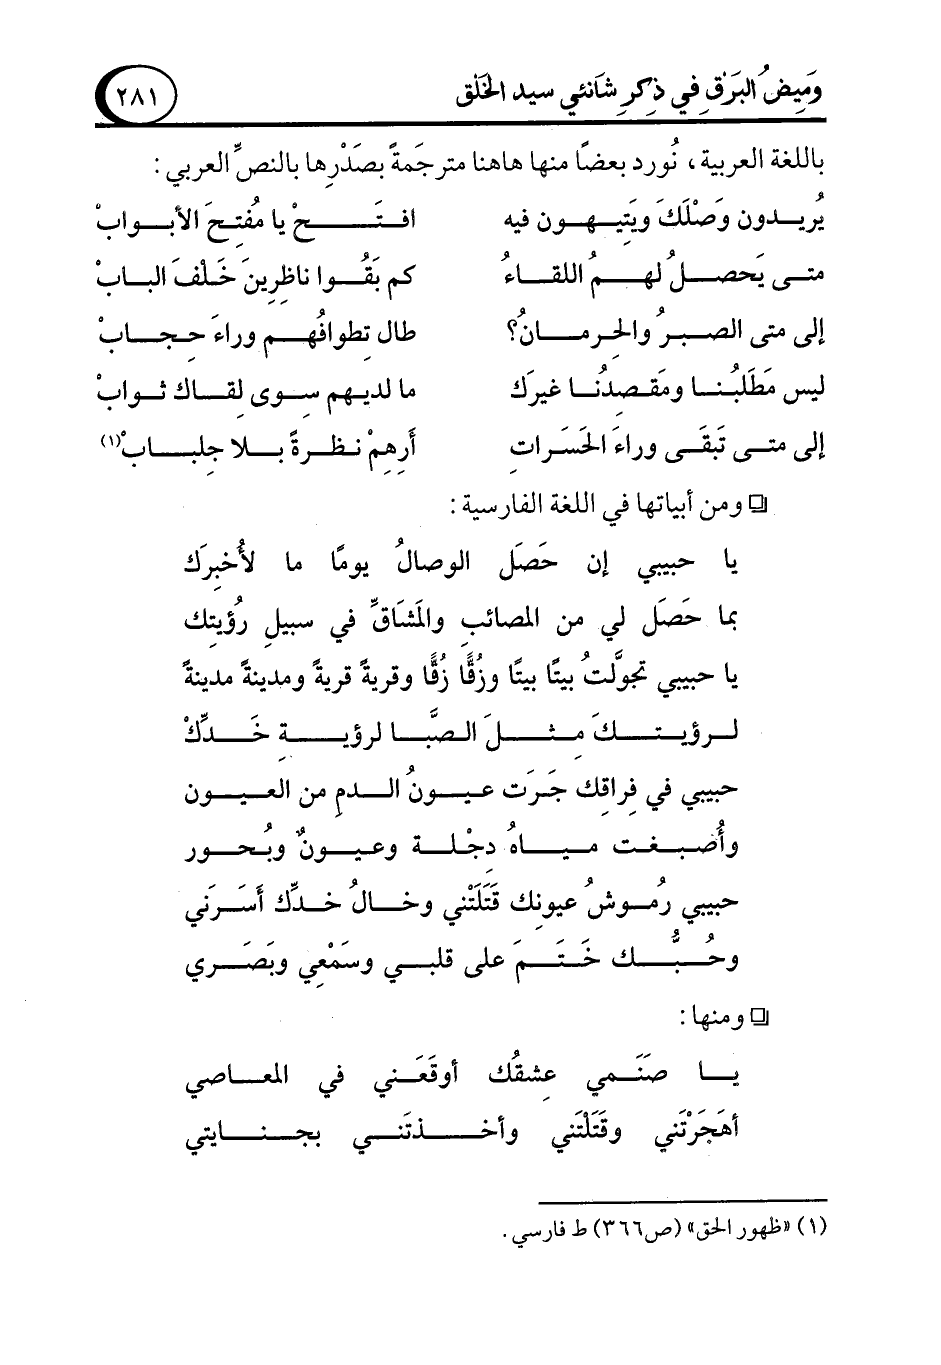 وَمِيضُ البَرَق في ذِكرِ شَانئي سيد الخَلْق
٢٨١
باللغة العربية، نُورد بعضًا منها هاهنا مترجمةً بصَدْرِها بالنصِّ العربي:
يُريدون وَصْلَكَ ويَتِيهون فيه افتَحْ يا مُفتِحَ الأبوابْ
متى يَحصلُ لهمُ اللقاءُ كم بَقُوا ناظِرِينَ خَلْفَ البابْ
إلى متى الصبرُ والحرمانُ؟ طال تطوافُهم وراءَ حِجابْ
ليس مَطَلبُنا ومَقصدُنا غيرَك ما لديهم سِوى لقاك ثوابْ
إلى متى تَبقَى وراءَ الحَسَراتِ أَرِهِمْ نظرةً بلا جلِبابْ(١)
❏ ومن أبياتها في اللغة الفارسية:
يا حبيبي إن حَصَل الوصالُ يومًا ما لأُخبِرَك
بما حَصَل لي من المصائبِ والمَشَاقِّ في سبيلِ رُؤيتِك
يا حبيبي تجولَّتُ بيتًا بيتًا وزُقًّا زُقًّا وقريةً قريةً ومدينةً مدينةً
لرؤيتكَ مِثلَ الصَّبا لرؤيةِ خَدِّكْ
حبيبي في فِراقِك جَرَت عيونُ الدمِ من العيون
وأُصبغت مياهُ دِجْلة وعيونٌ وبُحور
حبيبي رُموشُ عيونِك قَتَلَتْني وخالُ خدِّك أَسَرَني
وحُبُّك خَتَمَ على قلبي وسَمْعِي وبَصَري
❏ ومنها:
يا صَنَمي عِشقُك أوقَعَني في المعاصي
أهَجَرْتَني وقَتَلْتَني وأخذتَني بجنايتي
(١) «ظهور الحق» (ص٣٦٦) ط فارسي.